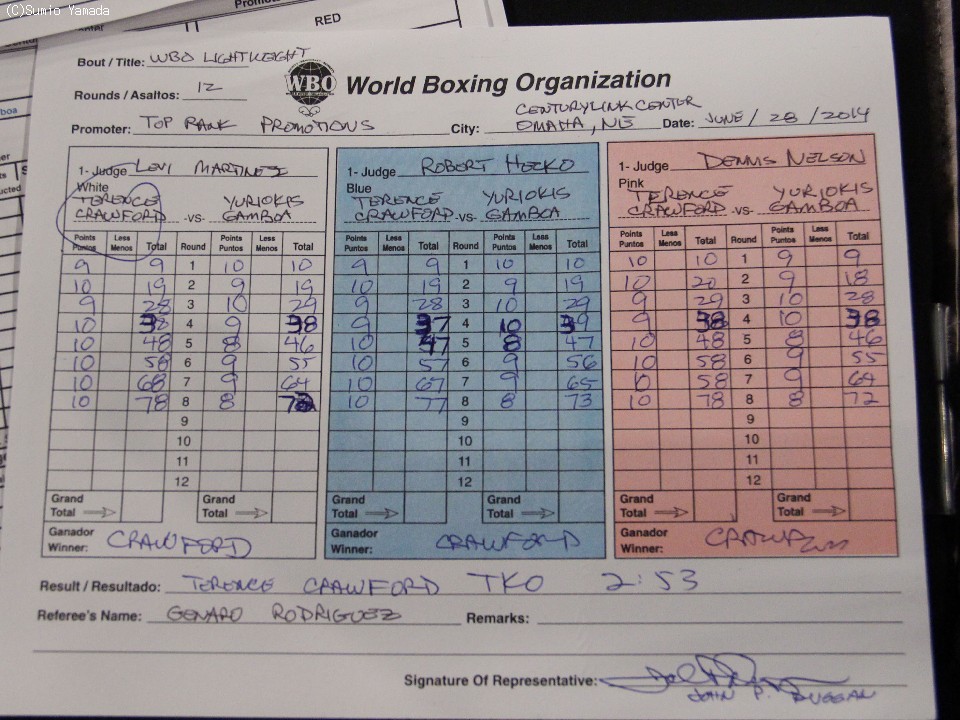 (C)Sumio Yamada
RED
Bout / Title: WBO LIGHTWEIGHT
WBO
World Boxing Organization
Rounds / Asaltos: 12
Promoter: TOP RANK PROMOTIONS City: CENTURYLINK CENTER OMAHA, NE Date: JUNE / 28 / 2014
1- Judge LEVI MARTINEZ
White
TERENCE CRAWFORD -vs- YURIOKIS GAMBOA
Points Puntos Less Menos Total Round Points Puntos Less Menos Total
9 9 1 10 10
10 19 2 9 19
9 28 3 10 29
10 38 4 9 38
10 48 5 8 46
10 58 6 9 55
10 68 7 9 64
10 78 8 8 72
9
10
11
12
Grand Total Grand Total
Ganador Winner: CRAWFORD
1- Judge ROBERT HECKO
Blue
TERENCE CRAWFORD -vs- YURIOKIS GAMBOA
Points Puntos Less Menos Total Round Points Puntos Less Menos Total
9 9 1 10 10
10 19 2 9 19
9 28 3 10 29
9 37 4 10 39
10 47 5 8 47
10 57 6 9 56
10 67 7 9 65
10 77 8 8 73
9
10
11
12
Grand Total Grand Total
Ganador Winner: CRAWFORD
1- Judge DENNIS NELSON
Pink
TERENCE CRAWFORD -vs- YURIOKIS GAMBOA
Points Puntos Less Menos Total Round Points Puntos Less Menos Total
10 10 1 9 9
10 20 2 9 18
9 29 3 10 28
9 38 4 10 38
10 48 5 8 46
10 58 6 9 55
10 58 7 9 64
10 78 8 8 72
9
10
11
12
Grand Total Grand Total
Ganador Winner:
Result / Resultado: TERENCE CRAWFORD TKO 2:53
Referee's Name: GENARO RODRIGUEZ Remarks:
Signature Of Representative:
JOHN P. DUGGAN